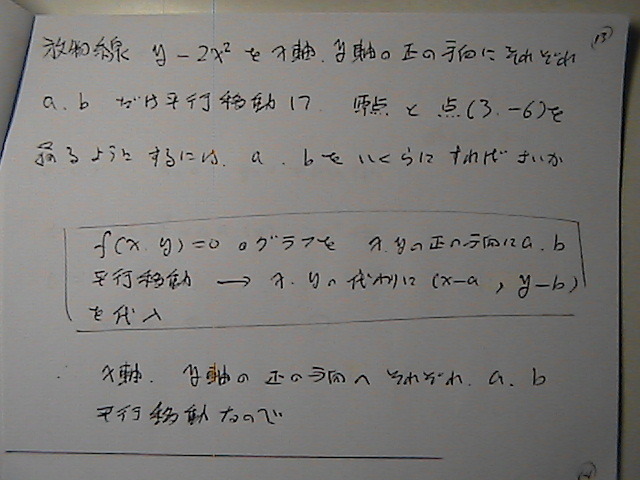 (13)
放物線 y-2x² を x軸、y軸の正の方向にそれぞれ
a、b だけ平行移動して 原点と点(3, -6)を
通るようにするには、a、bをいくらにすればよいか
f(x, y)=0 のグラフを x,yの正の方向にa、b
平行移動 → x,yの代わりに (x-a, y-b)
を代入
x軸、y軸の正の方向へそれぞれ、a、b
平行移動なので